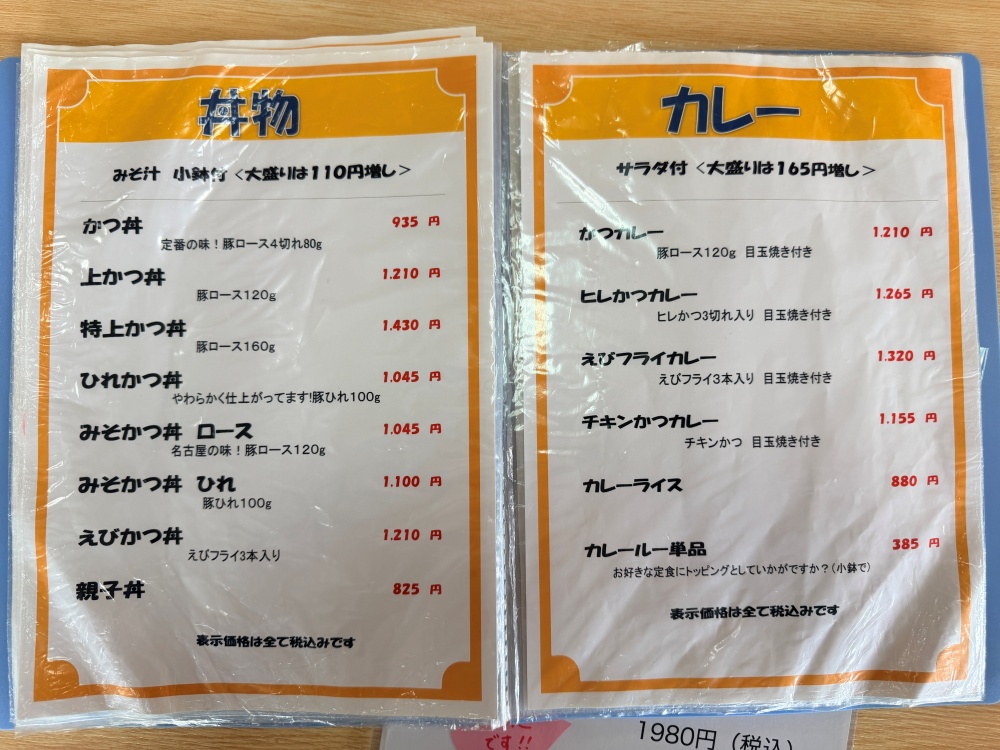 丼物
みそ汁 小鉢付<大盛りは110円増し>
かつ丼 935 円
定番の味!豚ロース4切れ80g
上かつ丼 1.210 円
豚ロース120g
特上かつ丼 1.430 円
豚ロース160g
ひれかつ丼 1.045 円
やわらかく仕上がってます!豚ひれ100g
みそかつ丼 ロース 1.045 円
名古屋の味!豚ロース120g
みそかつ丼 ひれ 1.100 円
豚ひれ100g
えびかつ丼 1.210 円
えびフライ3本入り
親子丼 825 円
表示価格は全て税込みです
カレー
サラダ付<大盛りは165円増し>
かつカレー 1.210 円
豚ロース120g 目玉焼き付き
ヒレかつカレー 1.265 円
ヒレかつ3切れ入り 目玉焼き付き
えびフライカレー 1.320 円
えびフライ3本入り 目玉焼き付き
チキンかつカレー 1.155 円
チキンかつ 目玉焼き付き
カレーライス 880 円
カレールー単品 385 円
お好きな定食にトッピングとしていかがですか?(小鉢で)
表示価格は全て税込みです
です!!
1980円(税込)